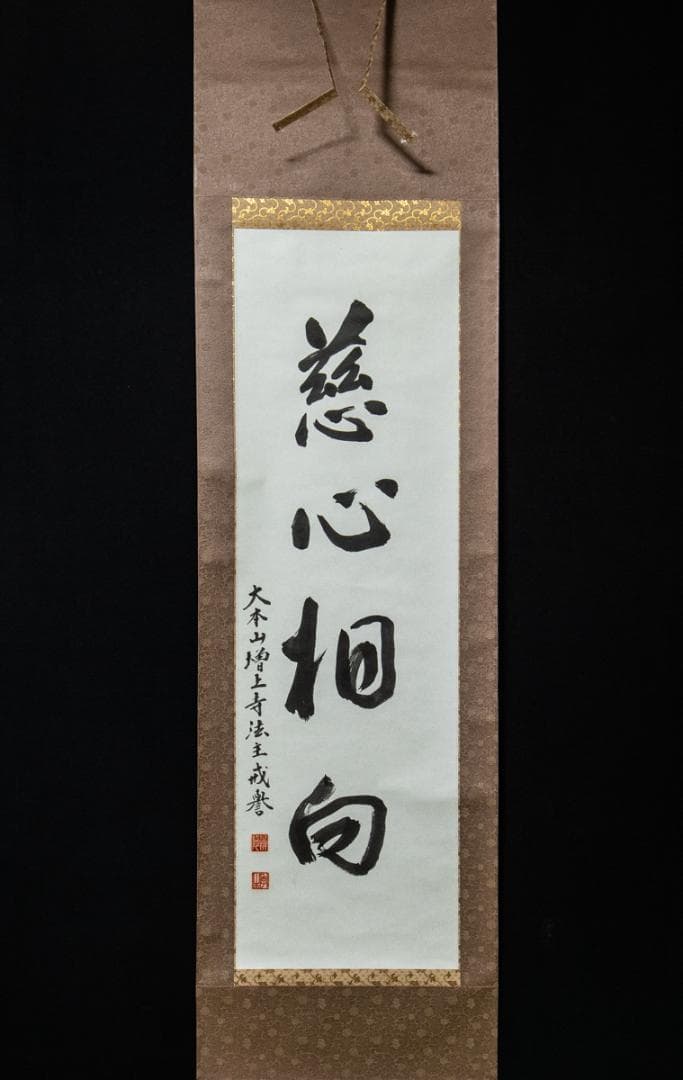 慈心相向
大本山増上寺法主戒譽